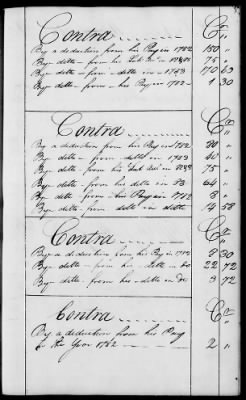 Contra Cr
By a deduction from his Pay in 1782 150 "
By ditto - from his Sub. in 75 "
By ditto - from - ditto - in - 1783 170 63
By ditto - from - his Pay in 1782 - 1 30
Contra Cr
By a deduction from his Pay in 1782 30 "
By ditto - from ditto in 1783 40 "
By ditto - from his Sub. in 75 "
By ditto - from his ditto in 83 64 "
By ditto - from - his Pay in 1782 3 "
By ditto - from ditto in ditto 14 58
Contra Cr
By a deduction from his Pay in 1782 8 30
By ditto - from his - ditto in Do 22 72
By ditto - from his - ditto in Do 3 72
Contra Cr
By a deduction from his Pay
in the Year 1782 2 "